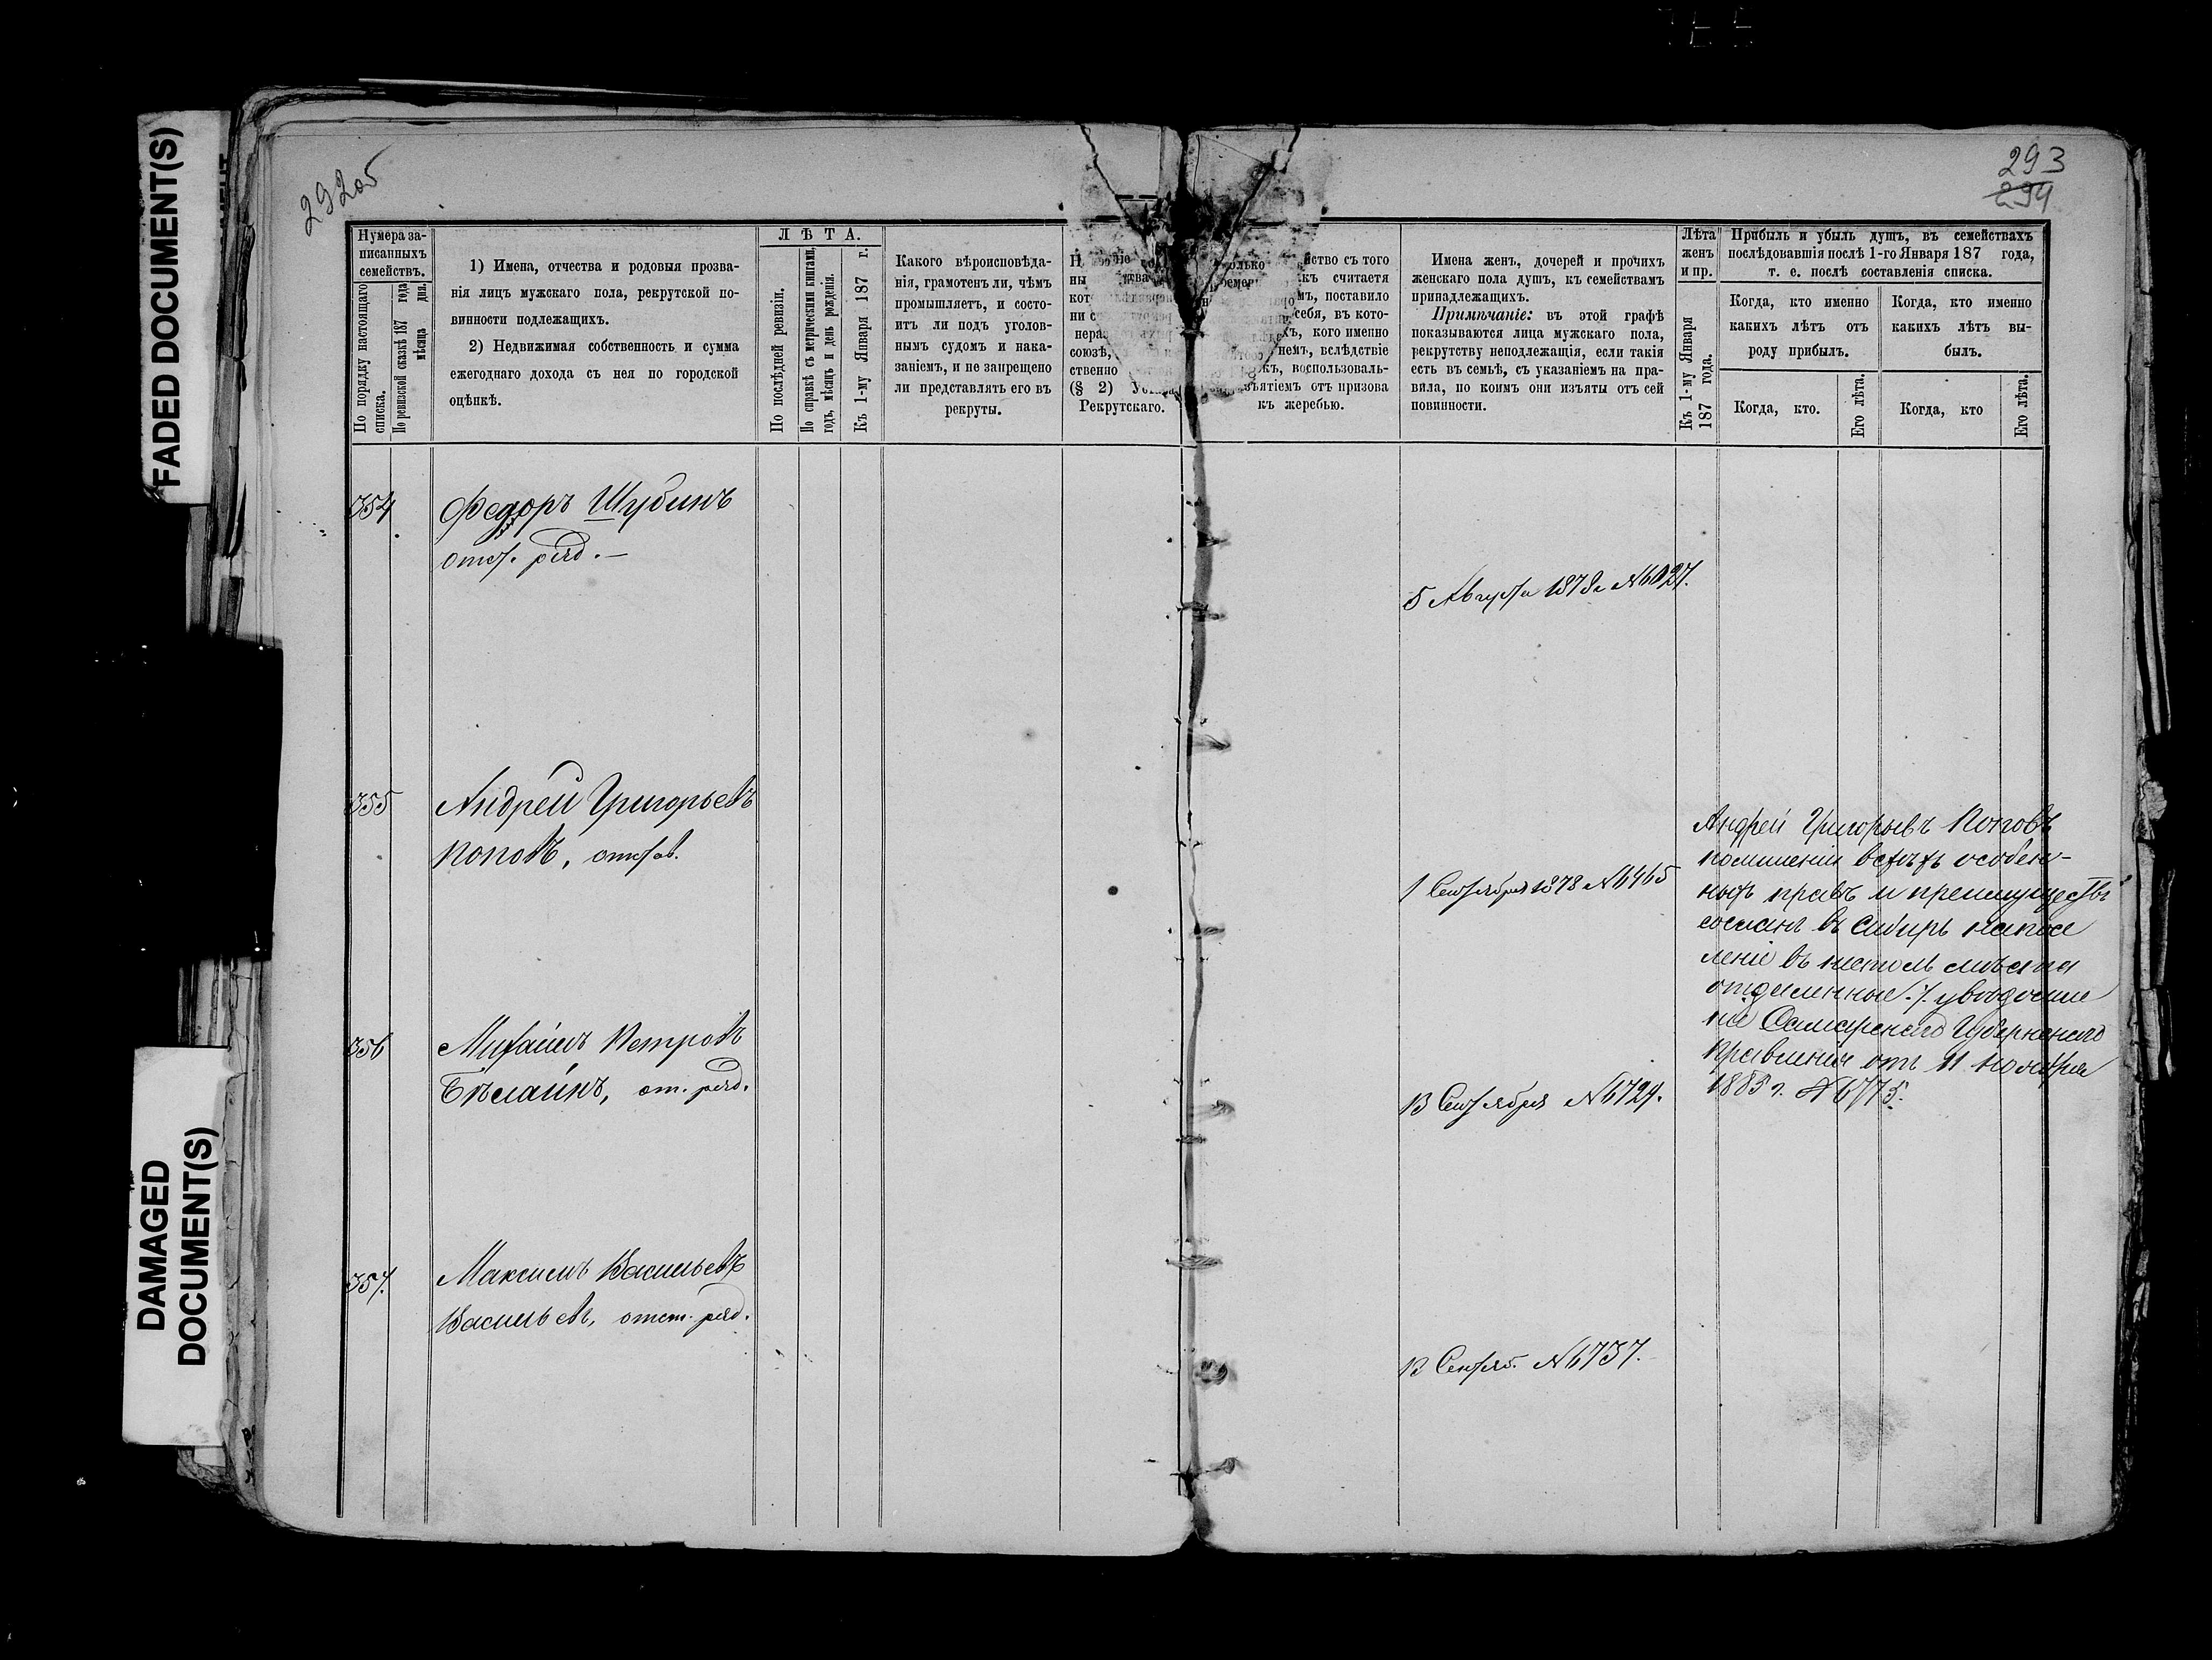 FADED DOCUMENT(S)
DAMAGED
DOCUMENT(S)
292об
293
294
Нумера за-
писанныхъ
семействъ.
По порядку настоящаго
списка.
По ревизской сказкѣ 187 года
мѣсяца дня.
1) Имена, отчества и родовыя прозва-
нія лицъ мужскаго пола, рекрутской по-
винности подлежащихъ.
2) Недвижимая собственность и сумма
ежегоднаго дохода съ нея по городской
оцѣнкѣ.
ЛѢТА.
По послѣдней ревизіи.
По справкѣ съ метрическими книгами,
годъ, мѣсяцъ и день рожденія.
Къ 1-му Января 187 г.
Какого вѣроисповѣда-
нія, грамотенъ ли, чѣмъ
промышляетъ, и состо-
итъ ли подъ уголов-
нымъ судомъ и нака-
заніемъ, и не запрещено
ли представлять его въ
рекруты.
союзѣ,
ственно
(§ 2)
Рекрутскаго.
съ того
считается
поставило
себя, въ кото-
кого именно
вслѣдствіе
воспользоваль-
изъятіемъ отъ призова
къ жеребью.
Имена женъ, дочерей и прочихъ
женскаго пола душъ, къ семействамъ
принадлежащихъ.
Примѣчаніе: въ этой графѣ
показываются лица мужскаго пола,
рекрутству неподлежащія, если такія
есть въ семьѣ, съ указаніемъ на пра-
вила, по коимъ они изъяты отъ сей
повинности.
Лѣта
женъ
и пр.
Къ 1-му Января
187 года.
Прибыль и убыль душъ, въ семействахъ
послѣдовавшія послѣ 1-го Января 187 года,
т. е. послѣ составленія списка.
Когда, кто именно
какихъ лѣтъ отъ
роду прибылъ.
Когда, кто именно
какихъ лѣтъ вы-
былъ.
Когда, кто.
Его лѣта.
Когда, кто
Его лѣта.
354
Федоръ Шубинъ
отст. ряд.
5 Августа 1878 г. №6027.
355
Андрей Григорьевъ
Поповъ, отстав.
1 Сентября 1878 №6465
Андрей Григорьевъ Поповъ
по лишеніи всѣхъ особен-
ныхъ правъ и преимуществъ
сосланъ въ Сибирь на посе
леніе въ не столь мѣста
отдаленные. / увѣдомле
ніе Самарскаго Губернскаго
Правленія отъ 11 ноября
1885 г. №6775.
356
Михаилъ Петровъ
Бѣлайкъ, от. ряд.
13 Сентября №6724.
357.
Максимъ Васильевъ
Васильевъ, отст. ряд.
13 Сентяб. №6737.